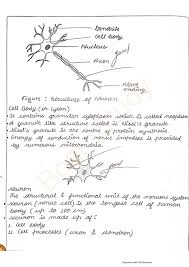 Dendrite
Cell Body
Nucleus
Axon
Nerve
ending
Figure : Structure of Neuron
Cell Body (or Cyton)
It contains granular cytoplasm which is called neuroplasm
A granule like structure called is Nissl's granule
Nissl's granule is the centre of protein synthesis
Energy of conduction of nerve impulses is provided
by numerous mitochondria
Neuron
The structural & functional unit of the nervous system
Neuron (nerve cell) is the longest cell of human
body (up to 100 cm)
Neuron is made up of :
1. Cell Body
2. Cell Processes (axon & dendron)